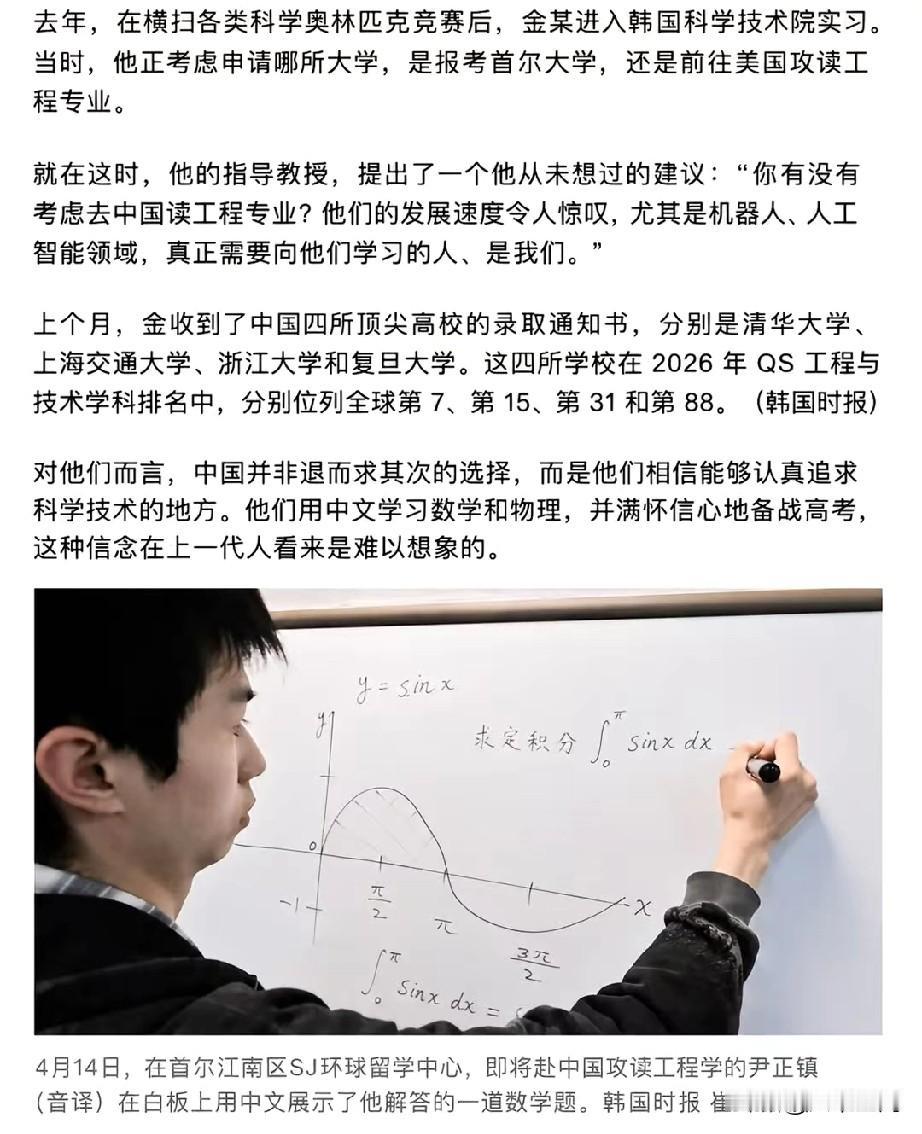 去年，在横扫各类科学奥林匹克竞赛后，金某进入韩国科学技术院实习。
当时，他正考虑申请哪所大学，是报考首尔大学，还是前往美国攻读工
程专业。
就在这时，他的指导教授，提出了一个他从未想过的建议：“你有没有
考虑去中国读工程专业？他们的发展速度令人惊叹，尤其是机器人、人工
智能领域，真正需要向他们学习的人、是我们。”
上个月，金收到了中国四所顶尖高校的录取通知书，分别是清华大学、
上海交通大学、浙江大学和复旦大学。这四所学校在 2026 年 QS 工程与
技术学科排名中，分别位列全球第 7、第 15、第 31 和第 88。（韩国时报）
对他们而言，中国并非退而求其次的选择，而是他们相信能够认真追求
科学技术的地方。他们用中文学习数学和物理，并满怀信心地备战高考，
这种信念在上一代人看来是难以想象的。
y = sin x
y
求定积分 ∫₀^π sinx dx
0
π/2
π
3π/2
x
-1
∫₀^π sinx dx =
4月14日，在首尔江南区SJ环球留学中心，即将赴中国攻读工程学的尹正镇
（音译）在白板上用中文展示了他解答的一道数学题。韩国时报 崔